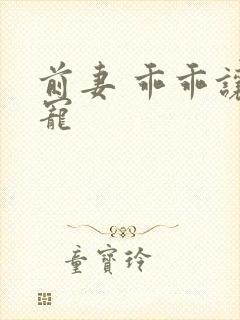 前妻 乖乖讓
寵
童寶玲